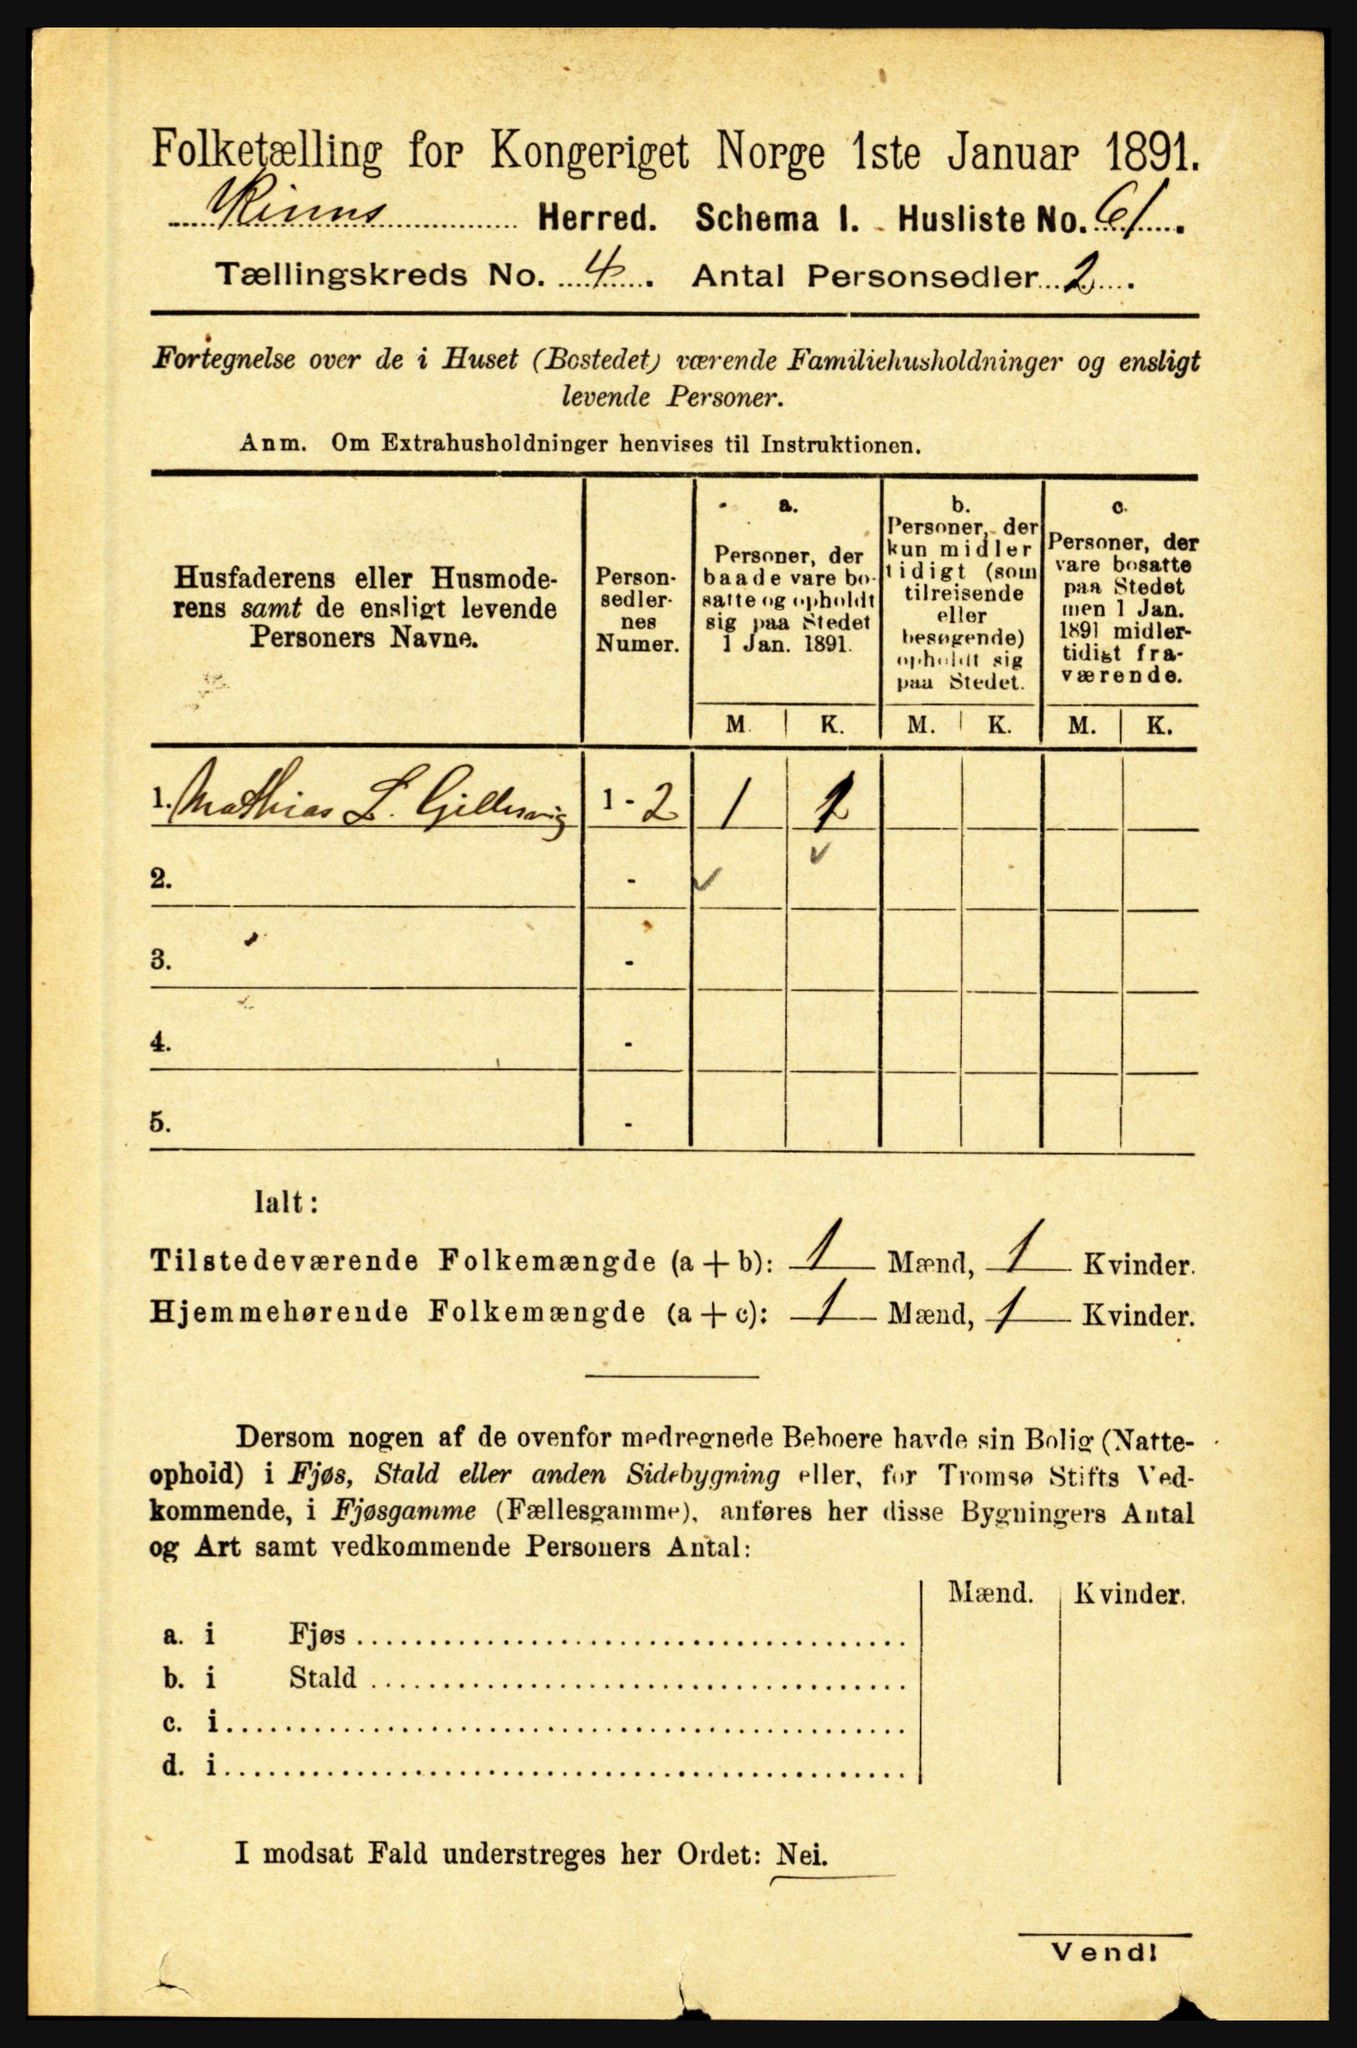 Folketælling for Kongeriget Norge 1ste Januar 1891.
Kinns Herred. Schema I. Husliste No. 61.
Tællingskreds No. 4. Antal Personsedler 2.
Fortegnelse over de i Huset (Bostedet) værende Familiehusholdninger og ensligt
levende Personer.
Anm. Om Extrahusholdninger henvises til Instruktionen.
Husfaderens eller Husmode-
rens samt de ensligt levende
Personers Navne.
Person-
sedler-
nes
Numer.
a.
Personer, der
baade vare bo-
satte og opholdt
sig paa Stedet
1 Jan. 1891.
b.
Personer, der
kun midler
tidigt (som
tilreisende
eller
besøgende)
opholdt sig
paa Stedet.
c.
Personer, der
vare bosatte
paa Stedet
men 1 Jan.
1891 midler-
tidigt fra-
værende.
M. K. M. K. M. K.
1. Mathias L. 1 - 2 1 1
2. -
3. -
4. -
5. -
Ialt:
Tilstedeværende Folkemængde (a + b): 1 Mænd, 1 Kvinder.
Hjemmehørende Folkemængde (a + c): 1 Mænd, 1 Kvinder.
Dersom nogen af de ovenfor medregnede Beboere havde sin Bolig (Natte-
ophold) i Fjøs, Stald eller anden Sidebygning eller, for Tromsø Stifts Ved-
kommende, i Fjøsgamme (Fællesgamme), anføres her disse Bygningers Antal
og Art samt vedkommende Personers Antal:
Mænd. Kvinder.
a. i Fjøs
b. i Stald
c. i
d. i
I modsat Fald understreges her Ordet: Nei.
Vend!